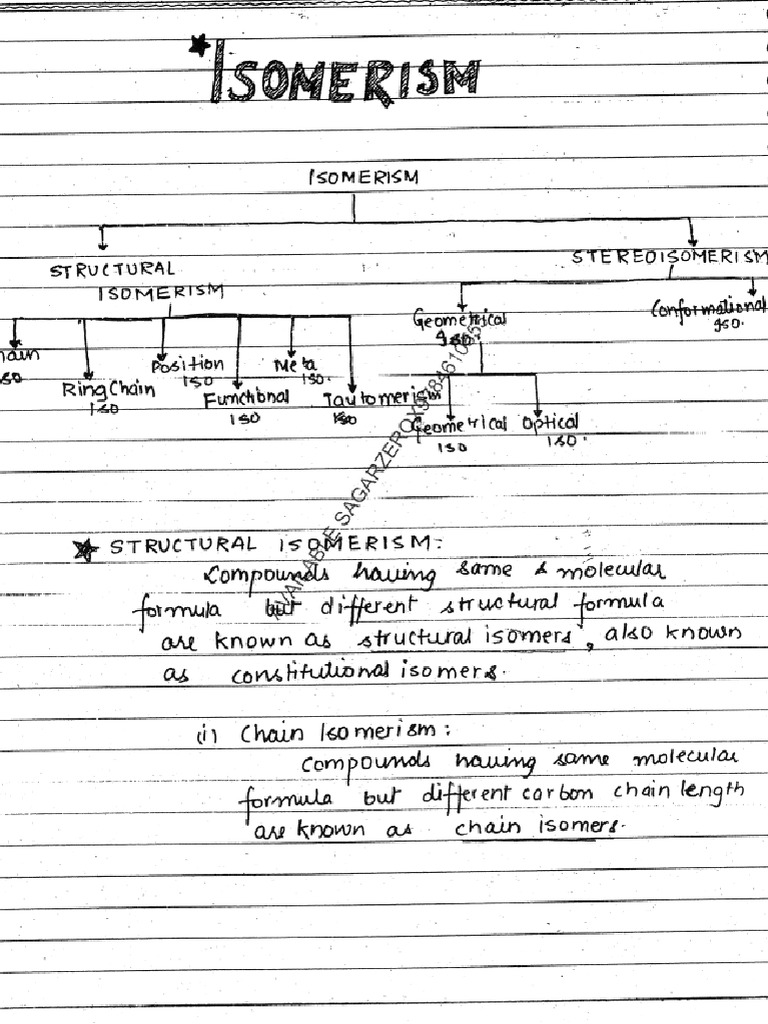 ★ ISOMERISM
ISOMERISM
STRUCTURAL
ISOMERISM
STEREOISOMERISM
Geometrical
Iso.
Conformational
Iso.
hain
so
Ring Chain
Iso
Position
Iso
Functional
Iso
Meta
Iso.
Tautomerism
Iso
Geometrical
Iso
Optical
Iso.
AVAILABLE SAGARZEROX
★ STRUCTURAL ISOMERISM:
Compounds having same molecular
formula but different structural formula
are known as structural isomers, also known
as constitutional isomers.
(i) Chain Isomerism:
Compounds having same molecular
formula but different carbon chain length
are known as chain isomers.